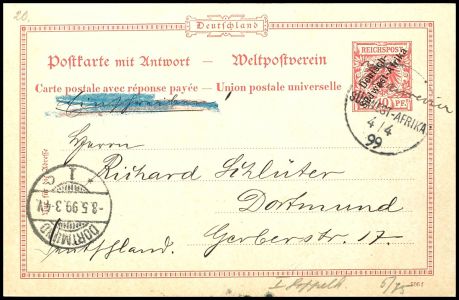 20.
Deutschland
Postkarte mit Antwort — Weltpostverein
Carte postale avec réponse payée — Union postale universelle
REICHSPOST
10 PF.
SÜDWEST-AFRIKA
4/4
99
Herrn
Richard Schlüter
Dortmund
Gerberstr. 17.
Deutschland.
DORTMUND
1
c
-8.5.99.3-4N.